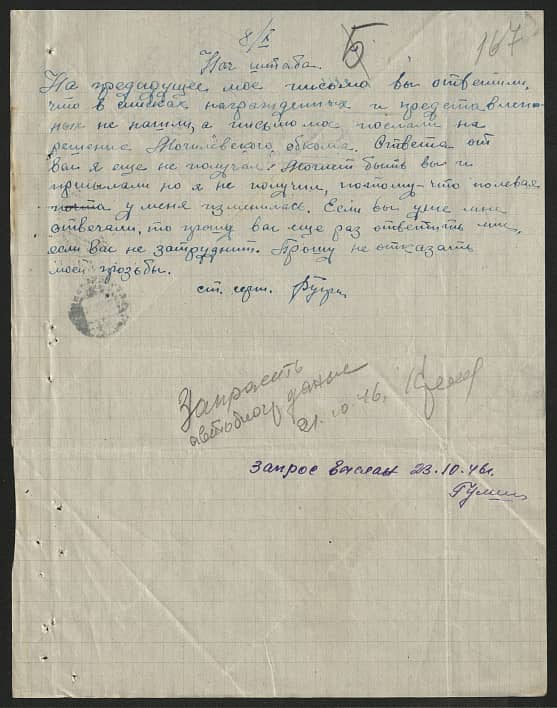 8/X
167
Нач штаба.
На предидущее мое письмо вы ответили,
что в списках награжденных и представлен-
ных не нашли, а письмо мое послали на
решение Могилевского обкома. Ответа от
вас я еще не получал. Может быть вы и
присылали но я не получил, потому-что полевая
почта у меня изменилась. Если вы уже мне
отвечали, то прошу вас еще раз ответить мне,
если вас не затруднит. Прошу не отказать
моей прозьбы.
ст. серж.
Запросить
автобиогр данные
21.10.46.
Запрос выслан 23.10.46г.